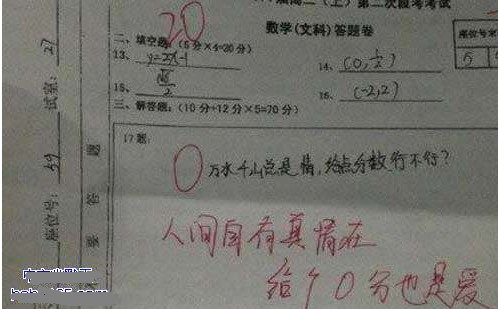 高二(上)第二次段考考试
数学(文科)答题卷
座位号末
20
二、填空题(5分×4=20分)
13、 y=2x-1
14、 (0,1/2)
15、
16、 (-2,2)
三、解答题:(10分+12分×5=70分)
17题:
0 万水千山总是情,给点分数行不行?
人间自有真情在
给个0分也是爱
试室: 27
座位号: 59
答 题
要